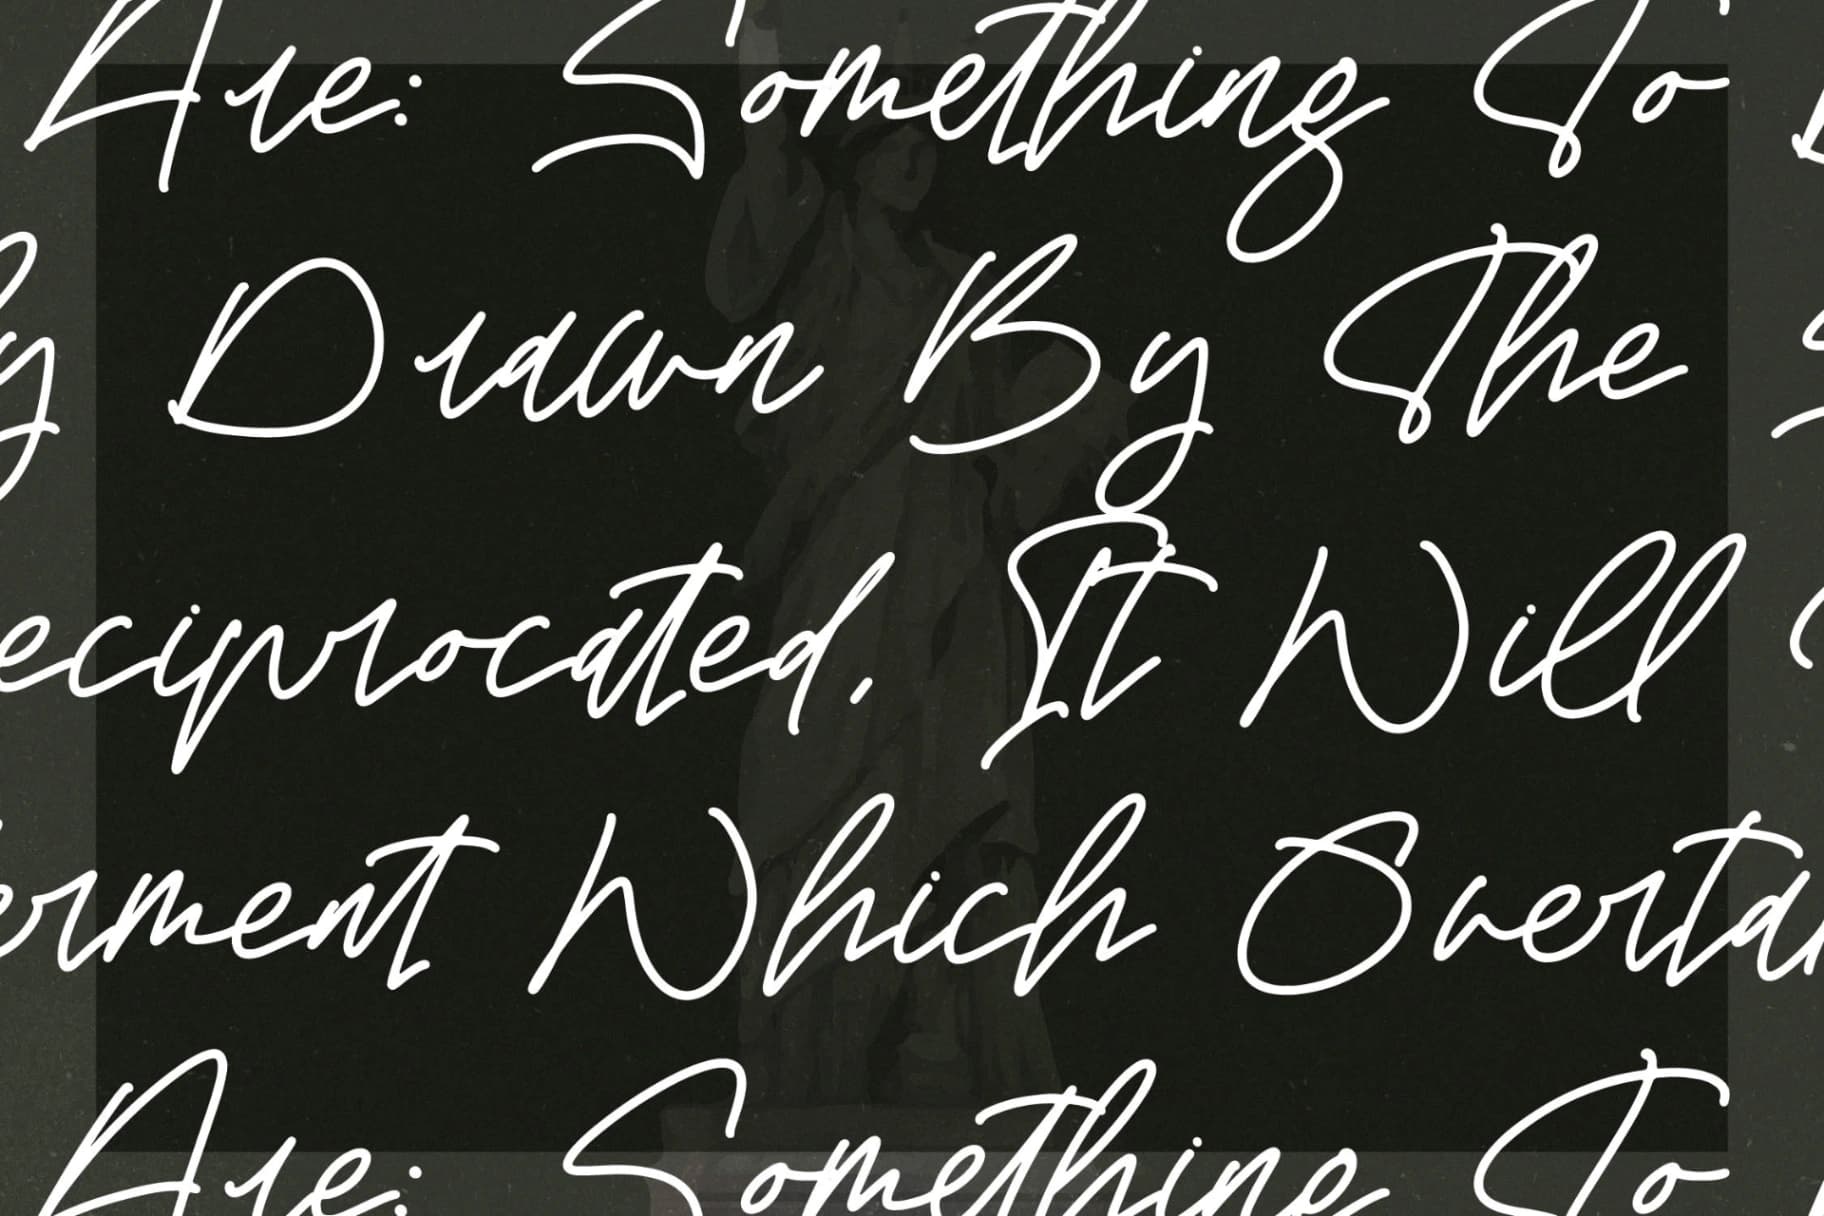 Are: Something To
Drawn By The
eciprocated, It Will
erment Which Overta
Are: Something To